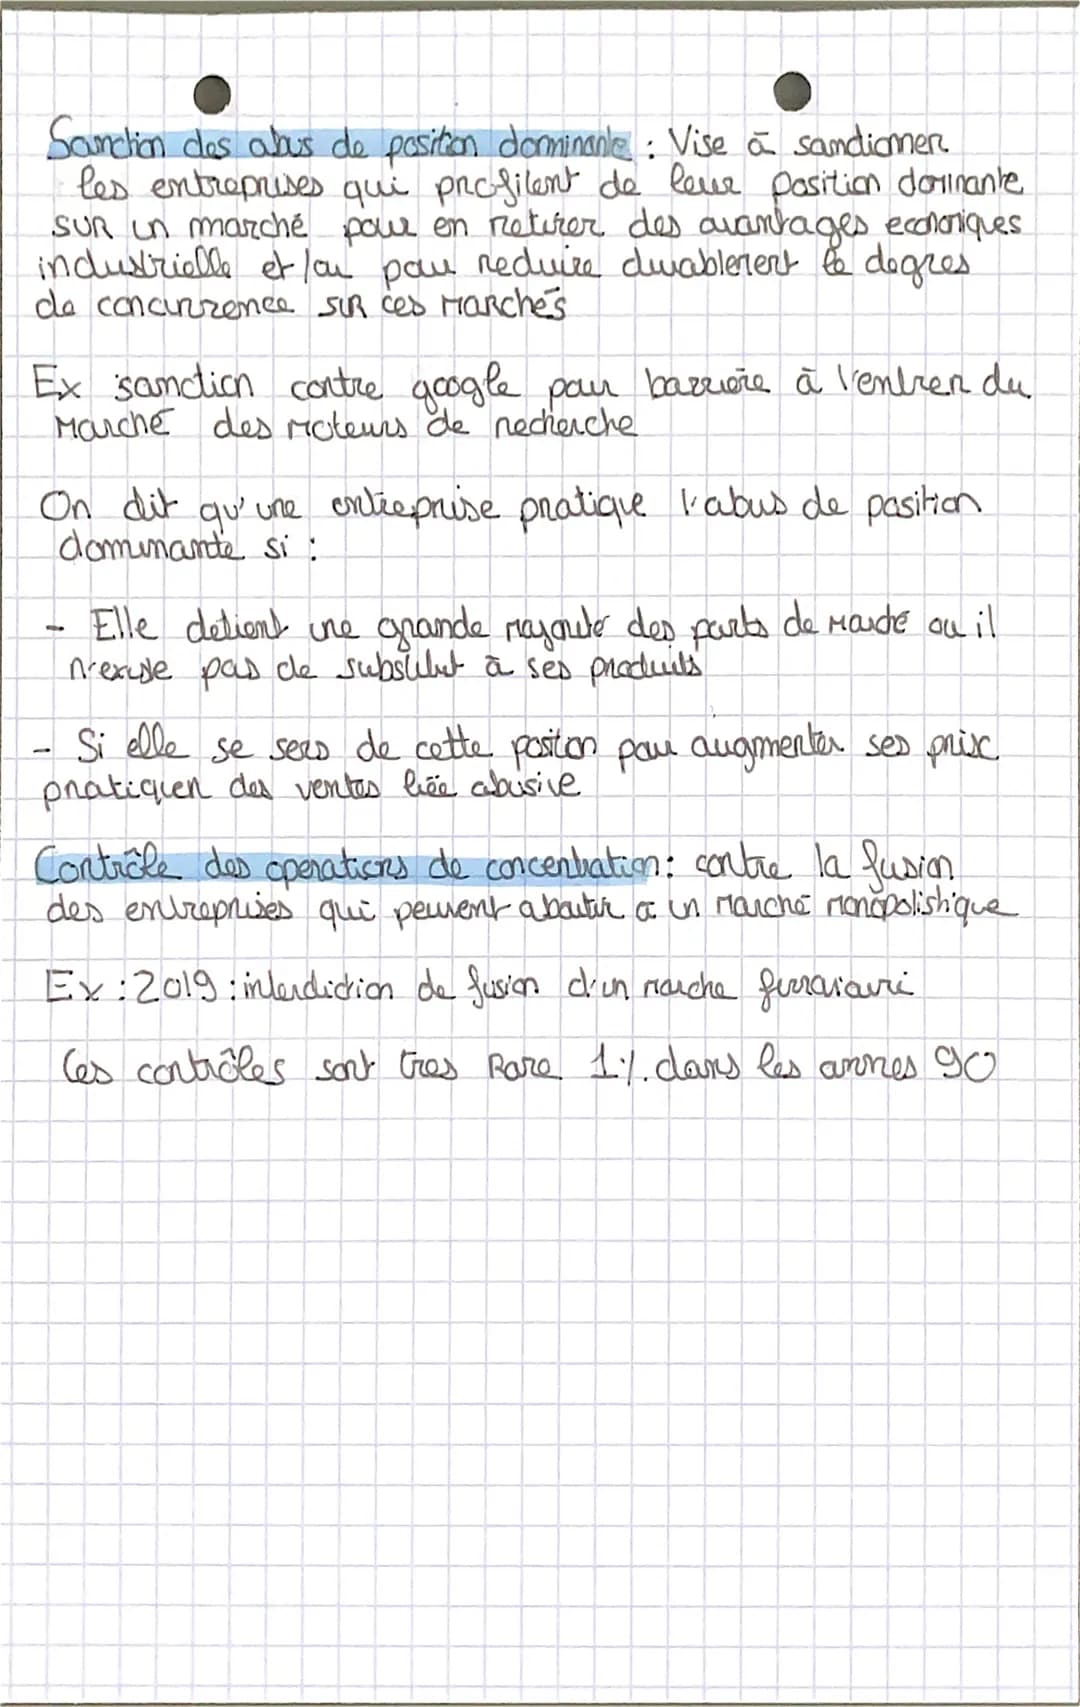 Sanction des abus de position dominante : Vise à sanctionner
les entreprises qui profitent de leur position dominante
sur un marché pour en retirer des avantages economiques
industrielle et/ou pour reduire durablement le degres
de concurrence sur ces marchés
Ex sanction contre google pour barrière à l'entrer du
marché des moteurs de recherche
On dit qu'une entreprise pratique l'abus de position
dominante si :
- Elle detient une grande majorité des parts de marché ou il
n'existe pas de substitut à ses produits
- Si elle se sers de cette positon pour augmenter ses prix
pratiquer des ventes liée abusive
Contrôle des operations de concentration : contre la fusion
des entreprises qui peuvent aboutir a un marché monopolistique
Ex : 2019 : interdiction de fusion d'un marche
Ces contrôles sont tres Rare 1% dans les annes 90